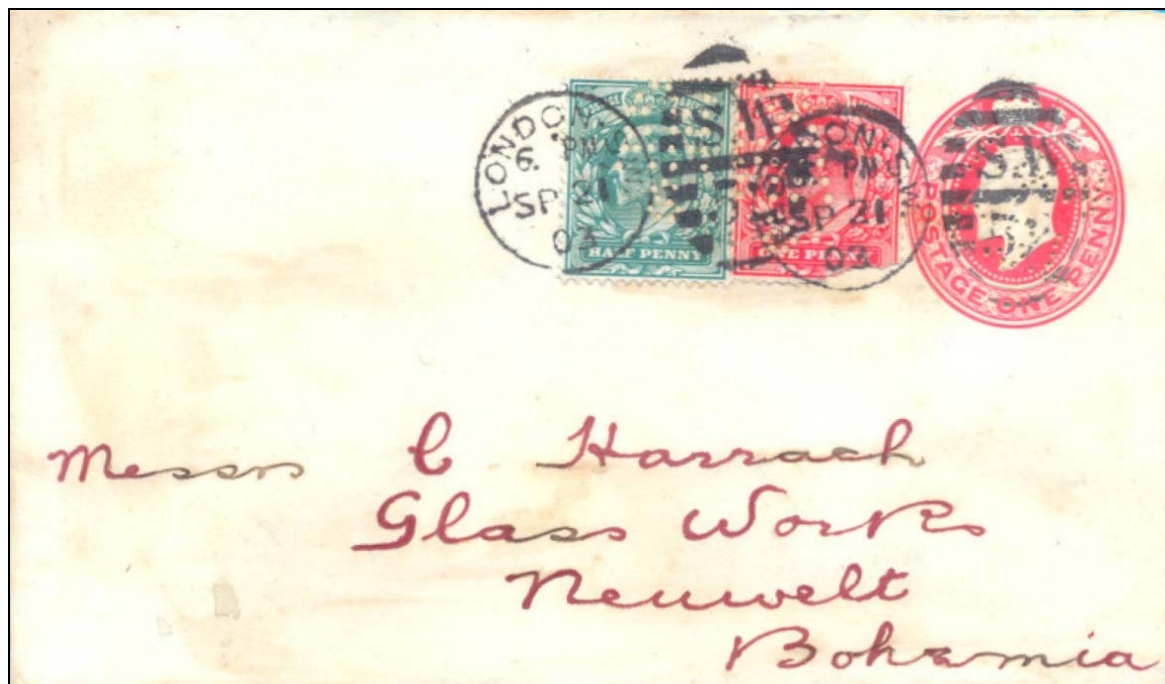 LONDON.W.C
6. PM
SP 21
03
HALF PENNY
ONE PENNY
6. PM
SP 21
03
POSTAGE ONE PENNY
Messrs C Harrach
Glass Works
Neuwelt
Bohemia